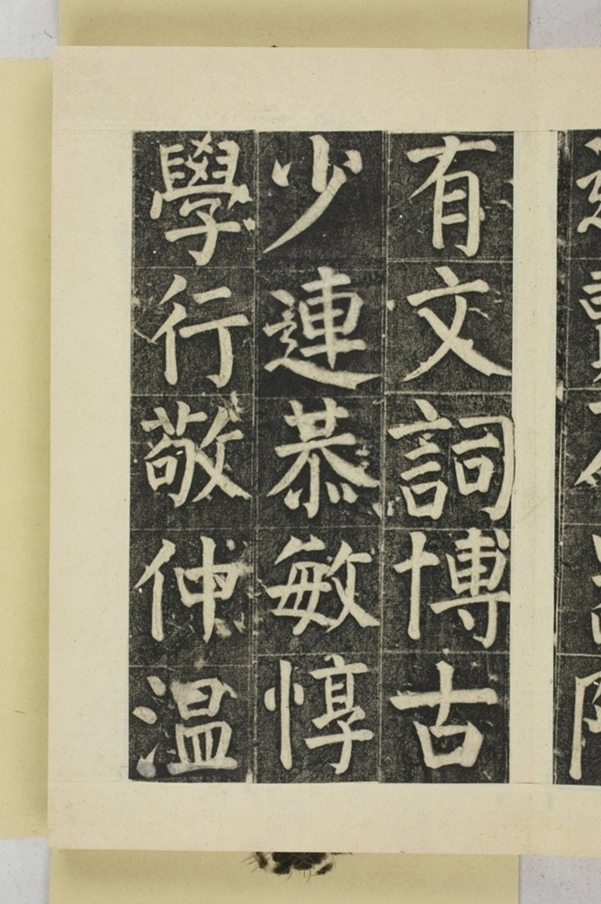 有文詞博古
少連恭敏惇
學行敬仲温